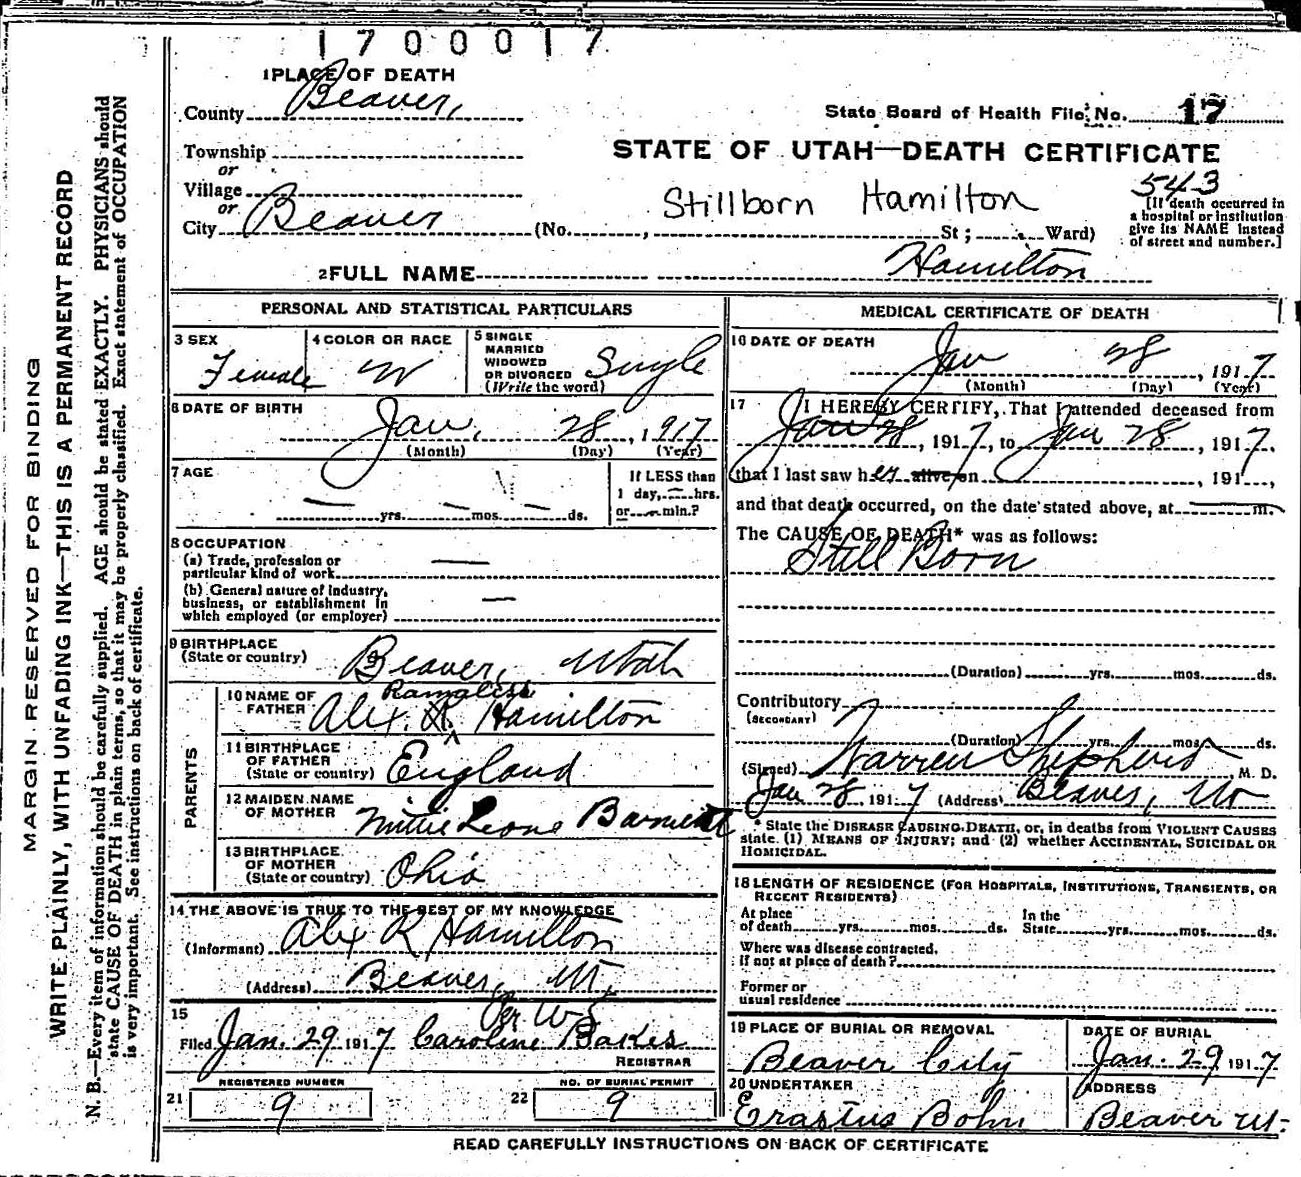 1700017
1 PLACE OF DEATH
County Beaver,
State Board of Health File No. 17
Township
or
Village
or
City Beaver
STATE OF UTAH—DEATH CERTIFICATE
543
Stillborn Hamilton
[If death occurred in
a hospital or institution
give its NAME instead
of street and number.]
(No. , St; Ward)
2 FULL NAME Hamilton
PERSONAL AND STATISTICAL PARTICULARS
3 SEX
Female
4 COLOR OR RACE
W
5 SINGLE
MARRIED
WIDOWED
OR DIVORCED
(Write the word)
Single
6 DATE OF BIRTH
Jan, 28, 1917
(Month) (Day) (Year)
7 AGE
— yrs. — mos. — ds.
If LESS than
1 day, — hrs.
or — min.?
8 OCCUPATION
(a) Trade, profession or
particular kind of work —
(b) General nature of industry,
business, or establishment in
which employed (or employer) —
9 BIRTHPLACE
(State or country) Beaver, Utah
PARENTS
10 NAME OF
FATHER Alex. R Hamilton
11 BIRTHPLACE
OF FATHER
(State or country) England
12 MAIDEN NAME
OF MOTHER Mittie Leone
13 BIRTHPLACE
OF MOTHER
(State or country) Ohio
14 THE ABOVE IS TRUE TO THE BEST OF MY KNOWLEDGE
(Informant) Alex R Hamilton
(Address) Beaver, Ut,
Per W S
15
Filed Jan. 29 1917 Caroline Bakes
REGISTRAR
21 REGISTERED NUMBER
9
22 NO. OF BURIAL PERMIT
9
MEDICAL CERTIFICATE OF DEATH
16 DATE OF DEATH
Jan 28, 1917
(Month) (Day) (Year)
17 I HEREBY CERTIFY, That I attended deceased from
Jan 28, 1917, to Jan 28, 1917,
that I last saw her alive on , 191 ,
and that death occurred, on the date stated above, at — m.
The CAUSE OF DEATH* was as follows:
Still Born
(Duration) yrs. mos. ds.
Contributory
(SECONDARY)
(Duration) yrs. mos. ds.
(Signed) Warren Shepherd M. D.
Jan 28 1917 (Address) Beaver, Ut
* State the DISEASE CAUSING DEATH, or, in deaths from VIOLENT CAUSES
state. (1) MEANS OF INJURY; and (2) whether ACCIDENTAL, SUICIDAL OR
HOMICIDAL.
18 LENGTH OF RESIDENCE (FOR HOSPITALS, INSTITUTIONS, TRANSIENTS, OR
RECENT RESIDENTS)
At place In the
of death yrs. mos. ds. State yrs. mos. ds.
Where was disease contracted.
if not at place of death?
Former or
usual residence
19 PLACE OF BURIAL OR REMOVAL
Beaver City
DATE OF BURIAL
Jan. 29 1917
20 UNDERTAKER
Erastus Bohn
ADDRESS
Beaver Ut-
READ CAREFULLY INSTRUCTIONS ON BACK OF CERTIFICATE
MARGIN RESERVED FOR BINDING
WRITE PLAINLY, WITH UNFADING INK—THIS IS A PERMANENT RECORD
N. B.—Every item of information should be carefully supplied. AGE should be stated EXACTLY. PHYSICIANS should
state CAUSE OF DEATH in plain terms, so that it may be properly classified. Exact statement of OCCUPATION
is very important. See instructions on back of certificate.